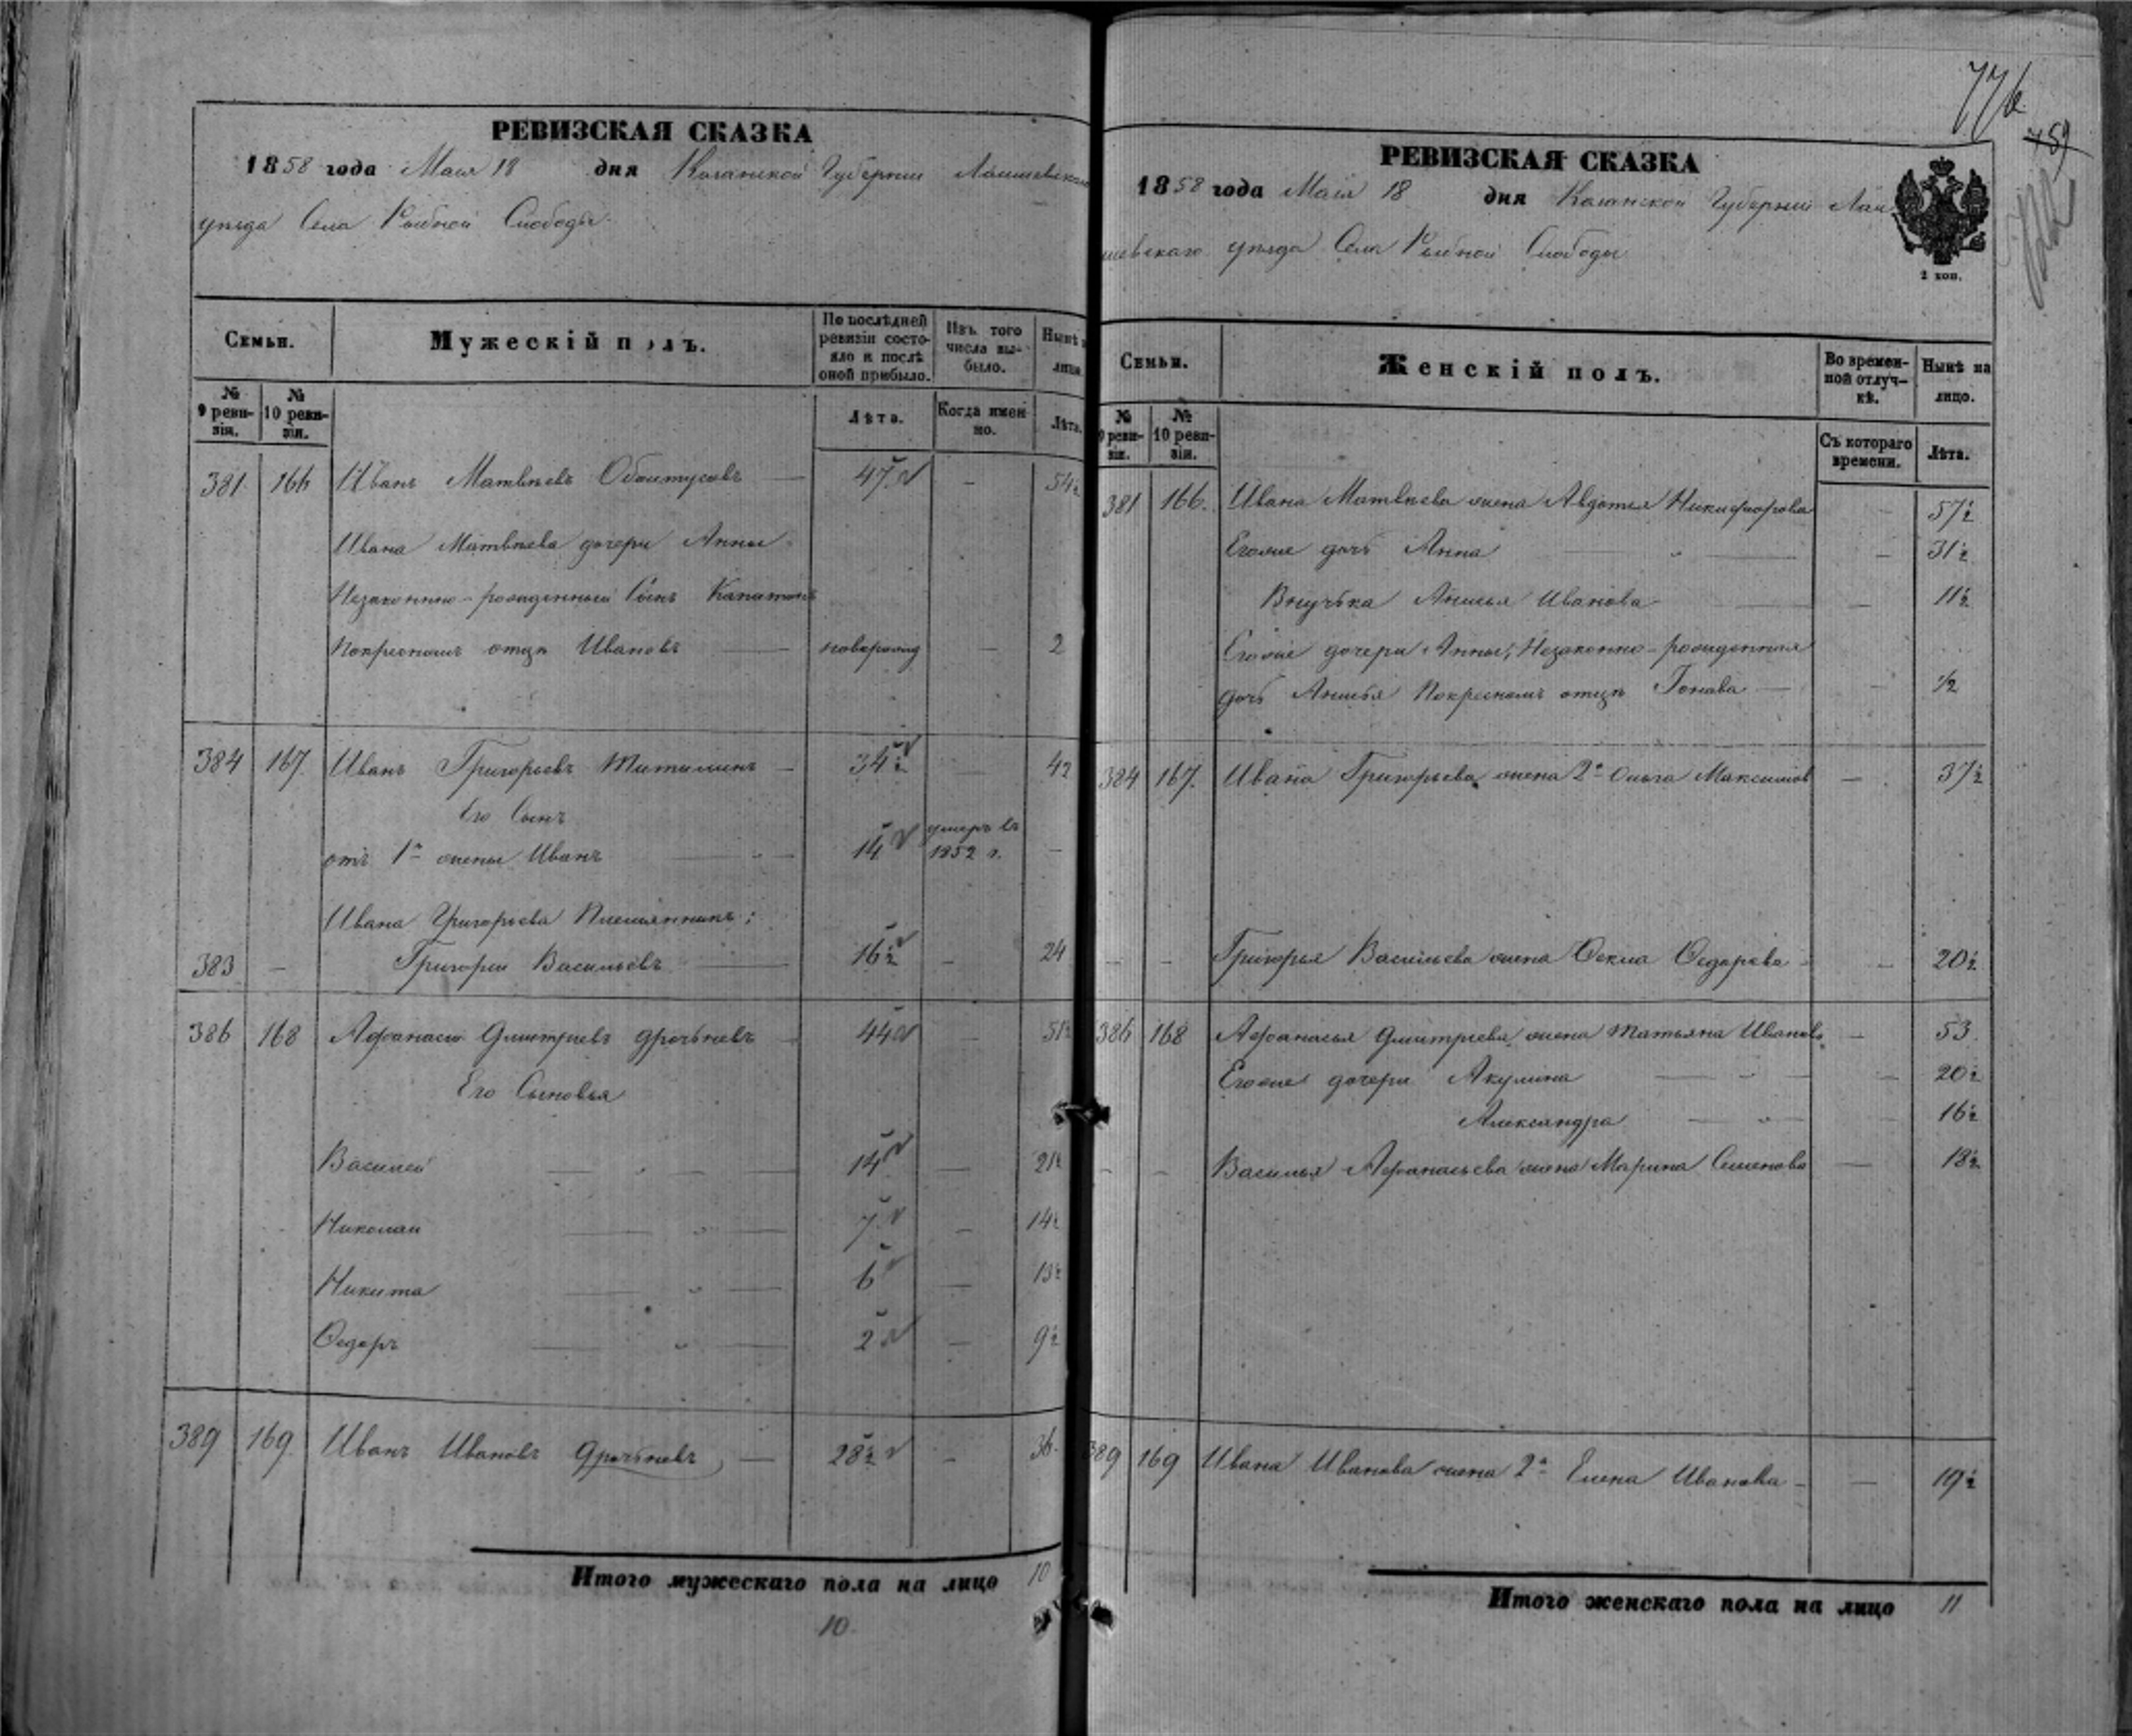 776
759
РЕВИЗСКАЯ СКАЗКА
1858 года Маия 18 дня Казанской Губернии Лаишевскаго
уѣзда Села Рыбной Слободы
Семьи. Мужескій полъ. По послѣдней ревизіи состояло и послѣ оной прибыло. Изъ того числа выбыло. Нынѣ на лицо.
№ 9 ревизіи. № 10 ревизіи. Лѣта. Когда именно. Лѣта.
381 166 Иванъ Матвѣевъ — 47 — 54½
Ивана Матвѣева дочери Анны
Незаконно-рожденный Сынъ Капитонъ
Покрестномъ отцѣ Ивановъ — новорожд — 2
384 167. Иванъ Григорьевъ — 34½ — 42
Его Сынъ
отъ 1й жены Иванъ — 14 умеръ въ 1852 г. —
Ивана Григорьева Племянникъ:
383 — Григорей Васильевъ — 16½ — 24
386 168 Афанасей Дмитріевъ Дрочневъ — 44 — 51½
Его Сыновья
Василей — " — 14 — 21½
Николай — " — 7 — 14½
Никита — " — 6 — 13½
Ѳедоръ — " — 2 — 9½
389 169 Иванъ Ивановъ Дрочневъ — 28½ — 36
Итого мужескаго пола на лицо 10
10.
РЕВИЗСКАЯ СКАЗКА
1858 года Маия 18 дня Казанской Губерніи Лаи
шевскаго уѣзда Села Рыбной Слободы
2 коп.
Семьи. Женскій полъ. Во временной отлучкѣ. Нынѣ на лицо.
№ 9 ревизіи. № 10 ревизіи. Съ котораго времени. Лѣта.
381 166. Ивана Матвѣева жена Авдотья Никифорова — 57½
Егоже дочь Анна — " — — 31½
Внучька Анисья Иванова — — 11½
Егоже дочери Анны, Незаконно-рожденная
дочь Анисья Покрестномъ отцѣ — — ½
384 167. Ивана Григорьева жена 2я Ольга Максимов — 37½
— — Григорья Васильева жена Ѳекла Ѳедорова — 20½
386 168 Афанасья Дмитріева жена Татьяна Иванова — 53
Егоже дочери Акулина — " — — 20½
Александра — " — — 16½
— — Василья Афанасьева жена Марина Семенова — 18½
389 169 Ивана Иванова жена 2я Елена Иванова — — 19½
Итого женскаго пола на лицо 11